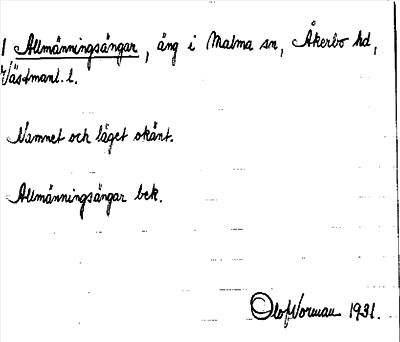 1 Allmänningsängar, äng i Malma sn, Åkerbo hd,
Västmanl. l.
Namnet och läget okänt.
Allmänningsängar bek.
Olof Norman 1931.